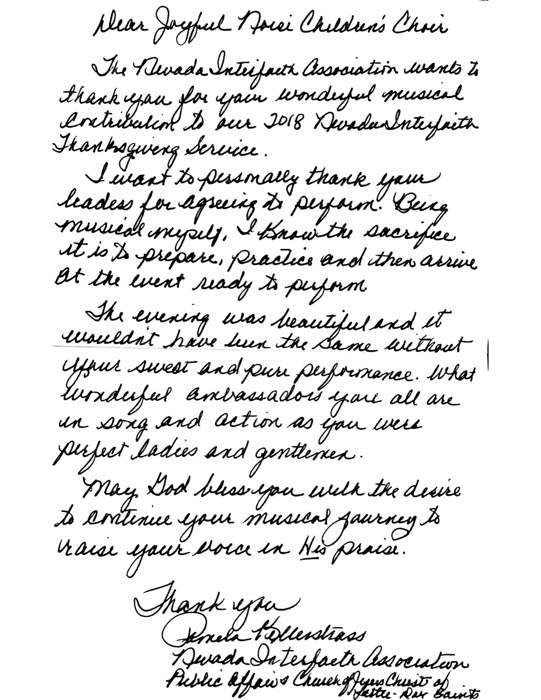 Dear Joyful Noise Children's Choir
The Nevada Interfaith Association wants to
thank you for your wonderful musical
contribution to our 2018 Nevada Interfaith
Thanksgiving Service.
I want to personally thank your
leaders for agreeing to perform. Being
musical myself, I know the sacrifice
it is to prepare, practice and then arrive
at the event ready to perform
The evening was beautiful and it
wouldn't have been the same without
your sweet and pure performance. What
wonderful ambassadors you all are
in song and action as you were
perfect ladies and gentlemen.
May God bless you with the desire
to continue your musical journey to
raise your voice in His praise.
Thank you
Pamela
Nevada Interfaith Association
Public Affairs Church of Jesus Christ of
Latter-Day Saints